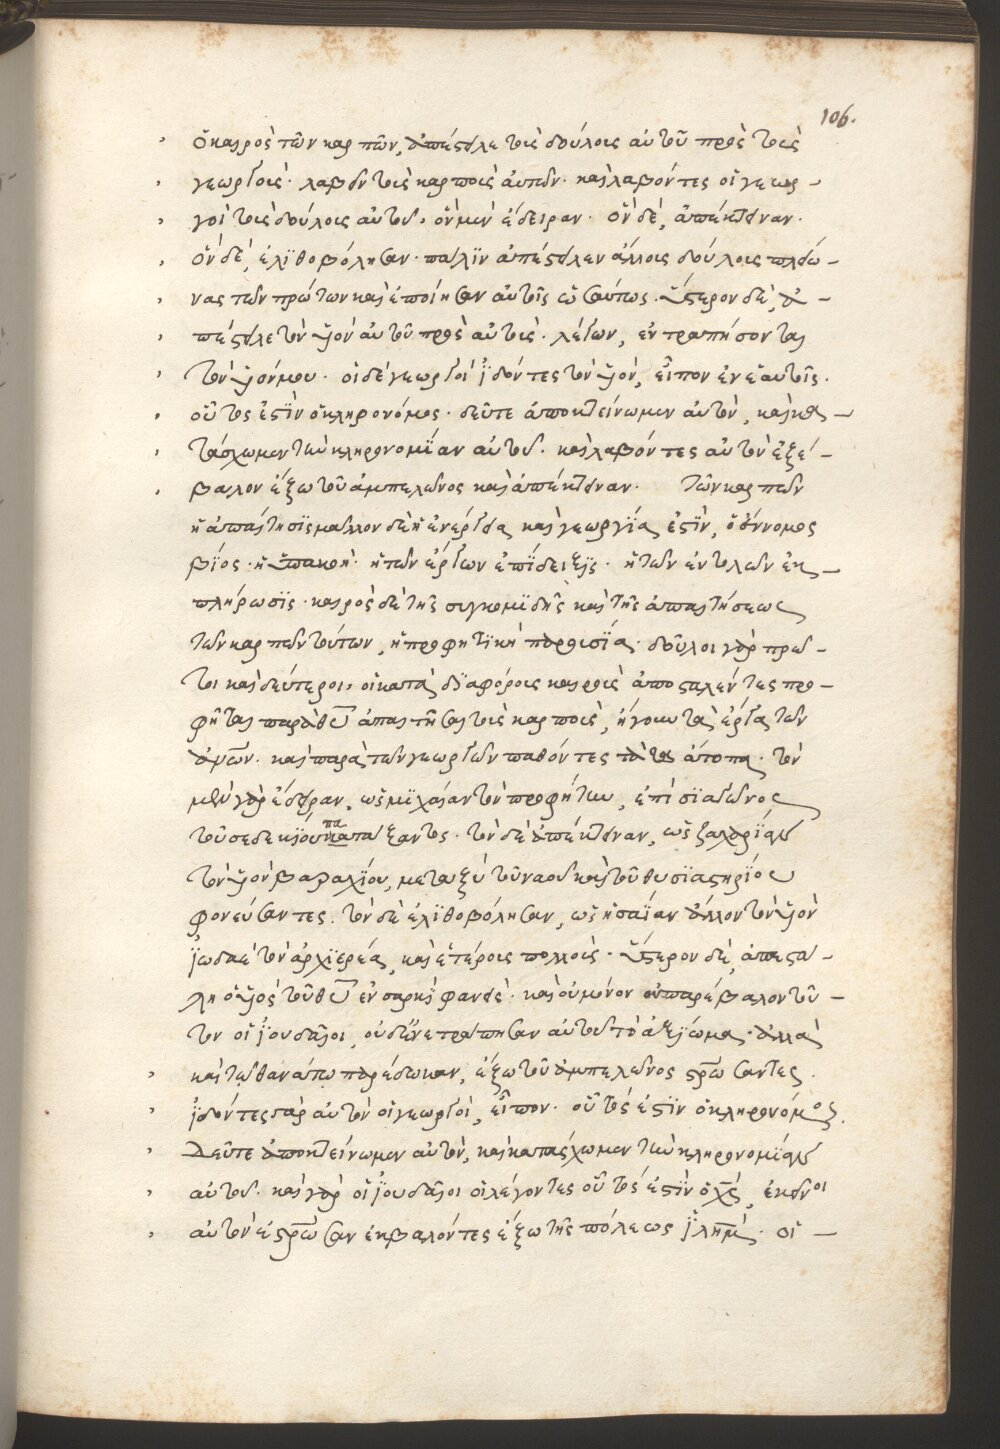 106.
ὁ καιρὸς τῶν καρπῶν, ἀπέστειλε τοὺς δούλους αὐτοῦ πρὸς τοὺς
γεωργοὺς· λαβεῖν τοὺς καρποὺς αὐτῶν· καὶ λαβόντες οἱ γεωρ-
γοὶ τοὺς δούλους αὐτοῦ, ὃν μὲν ἔδειραν· ὃν δὲ, ἀπέκτειναν·
ὃν δὲ, ἐλϊθοβόλησαν· παλϊν ἀπέστειλεν ἄλλους δούλους πλείο-
νας τῶν πρώτων καὶ ἐποίησαν αὐτοῖς ὡσαύτως. ὕστερον δὲ, ἀ-
πέστειλε τὸν υἱὸν αὐτοῦ πρὸς αὐτοὺς· λέγων, ἐντραπήσονται
τὸν υἱόν μου· οἱ δὲ γεωργοὶ ἰδόντες τὸν υἱὸν, εἶπον ἐν ἑαυτοῖς·
οὗτος ἐστϊν ὁ κληρονόμος· δεῦτε ἀποκτείνωμεν αὐτὸν, καὶ κα-
τάσχωμεν τὴν κληρονομΐαν αὐτοῦ· καὶ λαβόντες αὐτὸν ἐξέ-
βαλον ἔξω τοῦ ἀμπελῶνος καὶ ἀπέκτειναν. Τῶν καρπῶν
ἡ ἀπαίτησϊς μᾶλλον δὲ ἡ ἐνέργεια καὶ γεωργΐα ἐστϊν, ὁ ἔννομος
βΐος· ἡ ὑπακοὴ· ἡ τῶν ἔργων ἐπΐδειξϊς· ἡ τῶν ἐντολῶν ἐκ-
πλήρωσϊς· καιρὸς δὲ τῆς συγκομϊδῆς καὶ τῆς ἀπαιτήσεως
τῶν καρπῶν τούτων, ἡ προφητϊκὴ παρουσΐα· δοῦλοι γὰρ πρῶ-
τοι καὶ δεύτεροι, οἱ κατὰ δϊαφόρους καιροὺς ἀποσταλέντες προ-
φῆται παρὰ θῡ ἀπαιτῆσαι τοὺς καρποὺς, ἤγουν τὰ ἔργα τῶν
καὶ παρὰ τῶν γεωργῶν παθόντες τὰ ἄτοπα· τὸν
μὲν γὰρ ἔδειραν, ὡς μϊχαίαν τὸν προφήτην, ἐπὶ σϊαγῶνος
τοῦ σεδεκΐου παταξαντος· τὸν δὲ ἀπέκτειναν, ὡς ζαχαρΐαν
τὸν υἱὸν βαραχΐου, μεταξὺ τοῦ ναοῦ καὶ τοῦ θυσϊαστηρΐου
φονεύσαντες. τὸν δὲ ἐλϊθοβόλησαν, ὡς ἠσαΐαν ἄλλον τὸν υἱὸν
ἰωδαὲ τὸν ἀρχϊερέα, καὶ ἑτέρους πολλοὺς· ὕστερον δὲ, ἀπεστά-
λη ὁ υἱὸς τοῦ θῡ ἐν σαρκὶ φανεὶς· καὶ οὐ μόνον οὐ παρέβαλον τοῦ-
τον οἱ ἰουδαῖοι, οὐδ' ἐνετράπησαν αὐτοῦ τὸ ἀξϊωμα· ἀλλὰ
καὶ τῷ θανάτω παρέδωκαν, ἔξω τοῦ ἀμπελῶνος στρώσαντες.
ἰδόντες γὰρ αὐτὸν οἱ γεωργοὶ, εἶπον· οὗτός ἐστϊν ὁ κληρονόμος,
Δεῦτε ἀποκτείνωμεν αὐτὸν, καὶ κατάσχωμεν τὴν κληρονομΐαν
αὐτοῦ· καὶ γὰρ οἱ ἰουδαῖοι οἱ λέγοντες οὗτός ἐστϊν ὁ χς, ἐκεῖνοι
αὐτὸν ἐστρωσαν ἐκβαλόντες ἔξω τῆς πόλεως ἰλημ· οἱ -